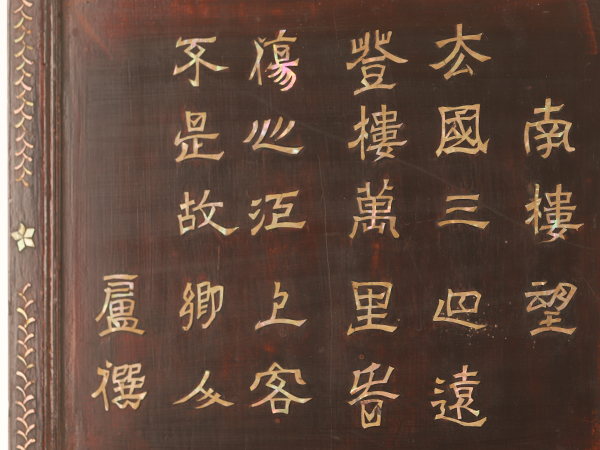 南樓望
去國三巴遠
登樓萬里旾
傷心江上客
不是故鄉人
盧僎